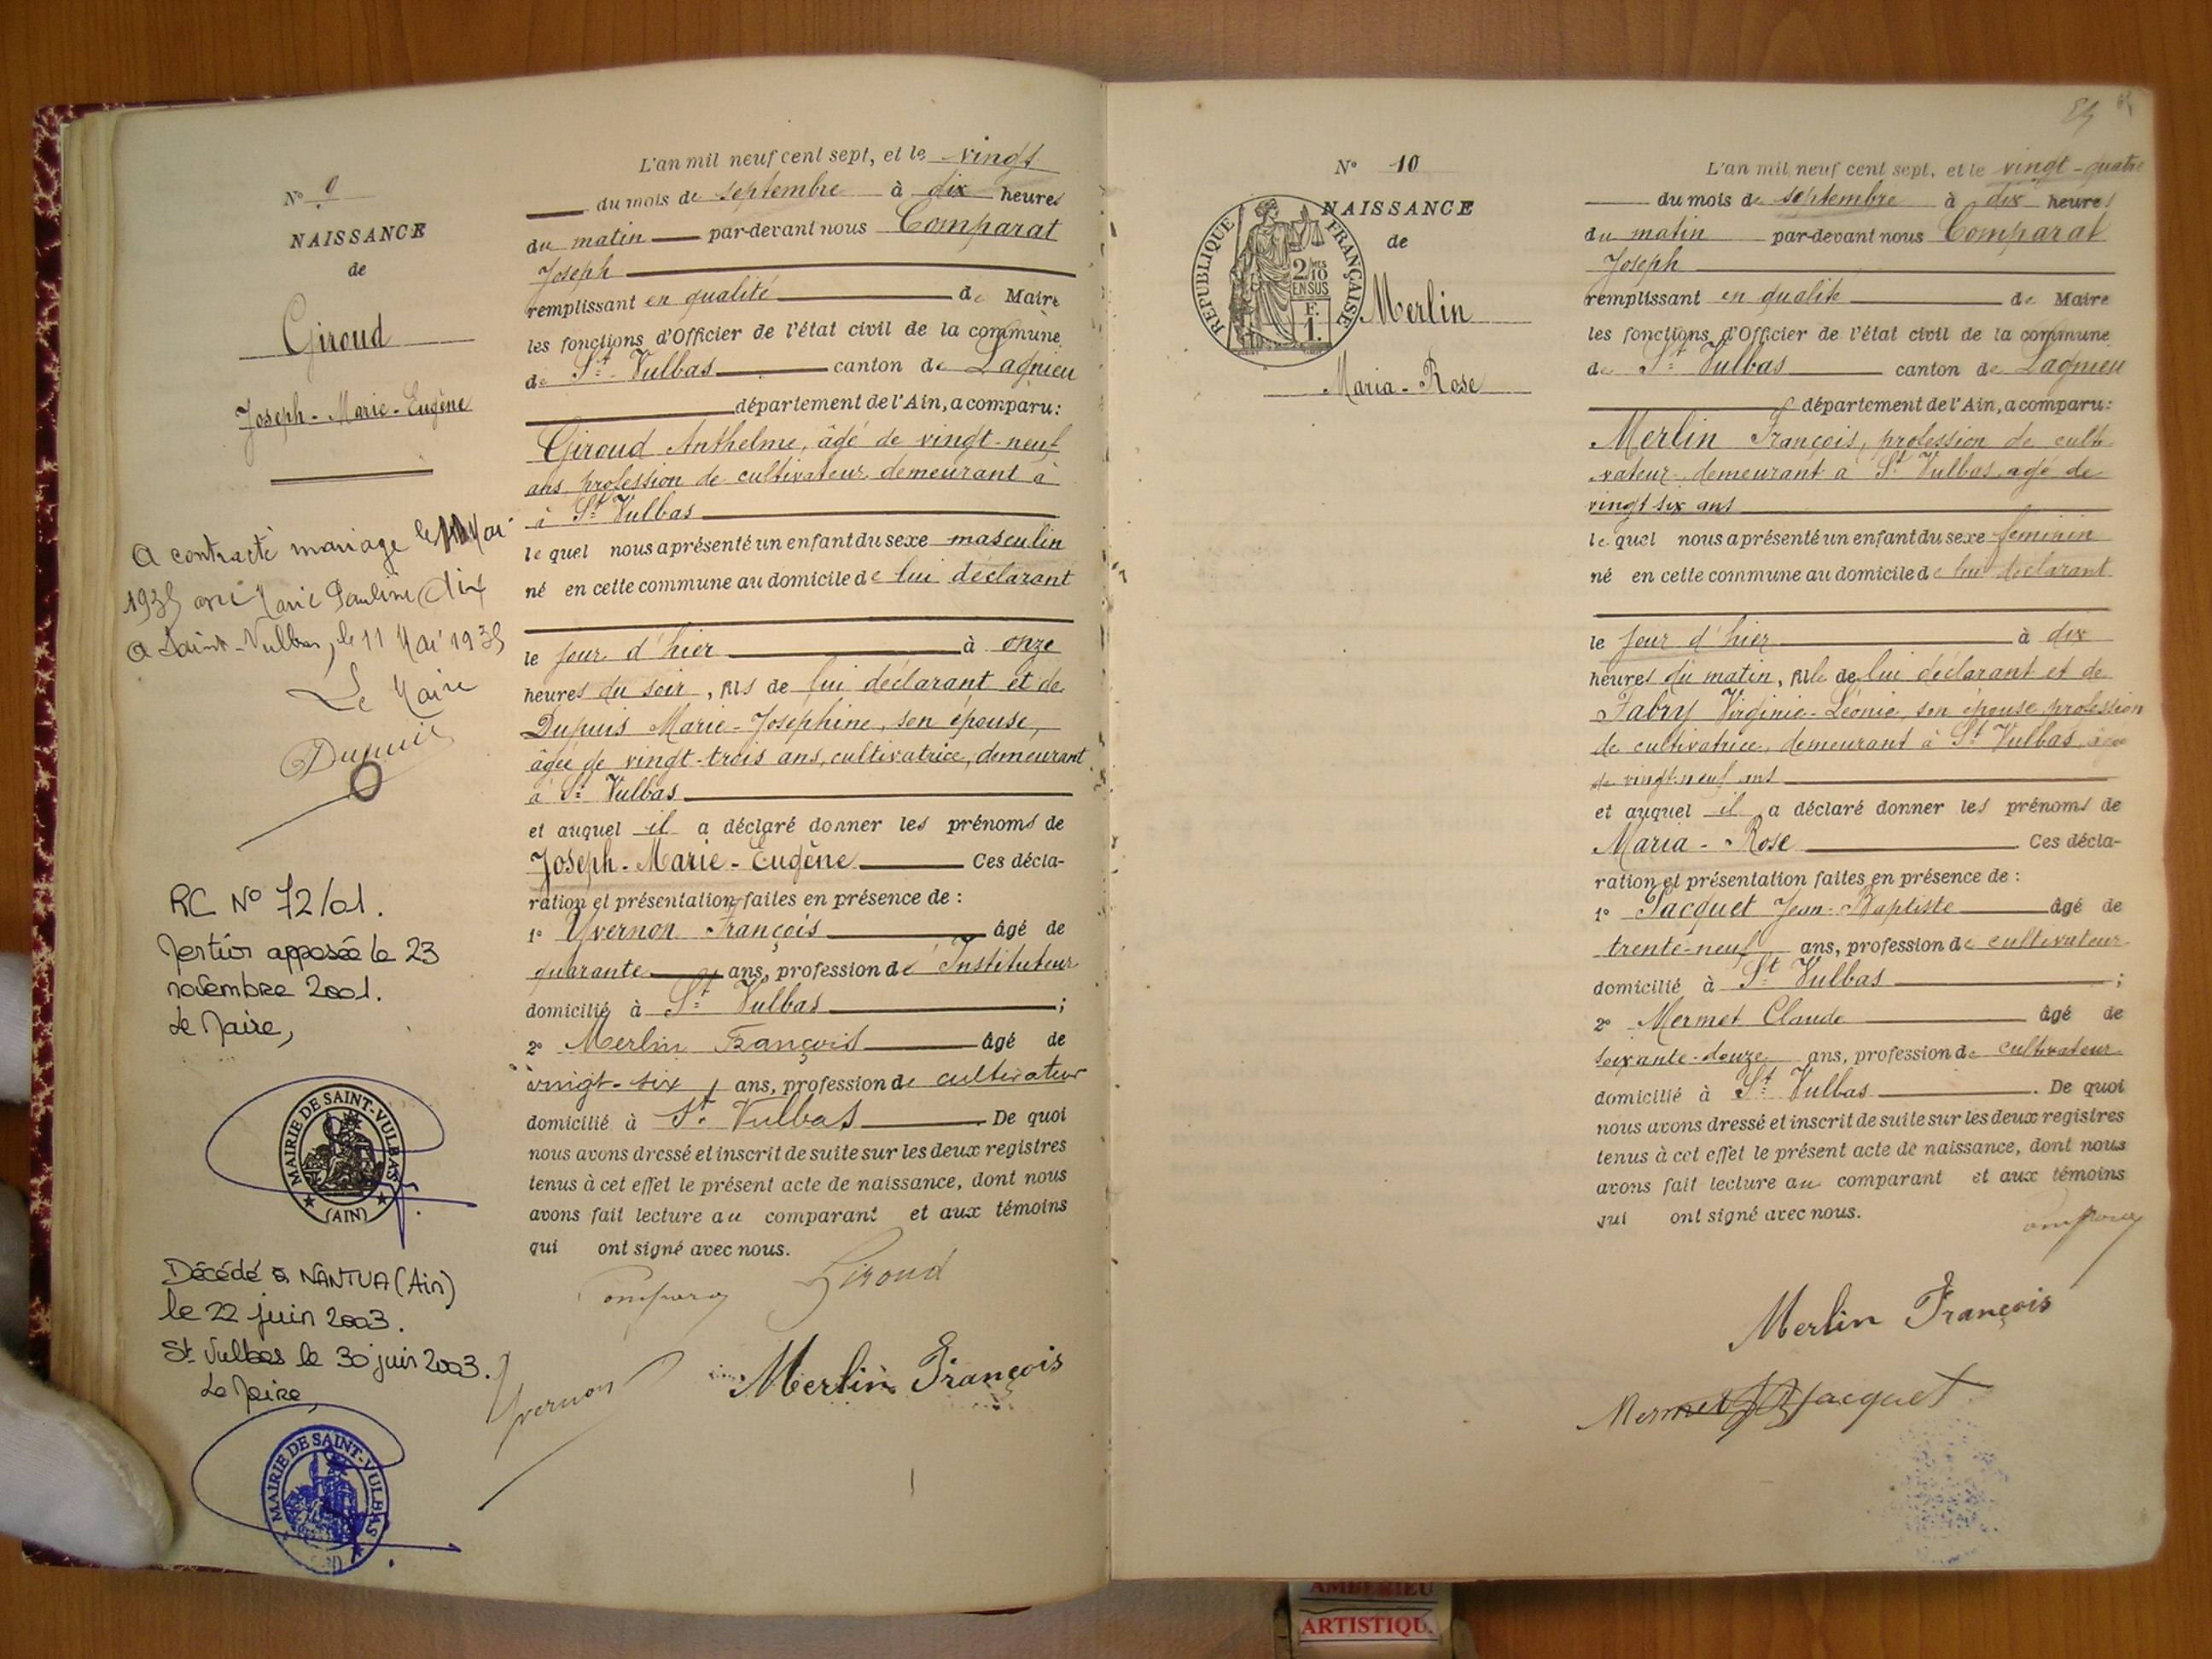 N° 9
NAISSANCE
de
Giroud
Joseph-Marie-Eugène
A contracté mariage le Mai
1935 avec Marie Pauline
A Saint-Vulbas, le 11 Mai 1935
Le Maire
Dupuis
RC N° 72/01.
Mention apposée le 23
novembre 2001.
Le Maire,
MAIRIE DE SAINT-VULBAS
(AIN)
Décédé à NANTUA (Ain)
le 22 juin 2003.
St Vulbas le 30 juin 2003.
Le Maire,
MAIRIE DE SAINT-VULBAS
(AIN)
L'an mil neuf cent sept, et le vingt
du mois de septembre à dix heures
du matin par-devant nous Comparat
Joseph
remplissant en qualité de Maire
les fonctions d'Officier de l'état civil de la commune
de St Vulbas canton de Lagnieu
département de l'Ain, a comparu:
Giroud Anthelme, âgé de vingt-neuf
ans, profession de cultivateur, demeurant à
à St Vulbas
lequel nous a présenté un enfant du sexe masculin
né en cette commune au domicile de lui déclarant
le jour d'hier à onze
heures du soir, fils de lui déclarant et de
Dupuis Marie-Joséphine, son épouse,
âgée de vingt-trois ans, cultivatrice, demeurant
à St Vulbas
et auquel il a déclaré donner les prénoms de
Joseph-Marie-Eugène Ces décla-
ration et présentation faites en présence de :
1° Yvernon François âgé de
quarante ans, profession de Instituteur
domicilié à St Vulbas ;
2° Merlin François âgé de
vingt-six ans, profession de cultivateur
domicilié à St Vulbas De quoi
nous avons dressé et inscrit de suite sur les deux registres
tenus à cet effet le présent acte de naissance, dont nous
avons fait lecture au comparant et aux témoins
qui ont signé avec nous.
Giroud
Comparat
Yvernon
Merlin François
N° 10
NAISSANCE
de
REPUBLIQUE FRANÇAISE
2/10 MES
EN SUS
F.
1.
Merlin
Maria-Rose
L'an mil neuf cent sept, et le vingt-quatre
du mois de septembre à dix heures
du matin par-devant nous Comparat
Joseph
remplissant en qualité de Maire
les fonctions d'Officier de l'état civil de la commune
de St Vulbas canton de Lagnieu
département de l'Ain, a comparu:
Merlin François, profession de culti-
vateur, demeurant à St Vulbas, agé de
vingt six ans
lequel nous a présenté un enfant du sexe féminin
né en cette commune au domicile de lui déclarant
le jour d'hier à dix
heures du matin, fille de lui déclarant et de
Fabry Virginie-Léonie, son épouse, profession
de cultivatrice, demeurant à St Vulbas, âgée
de vingt-neuf ans
et auquel il a déclaré donner les prénoms de
Maria-Rose Ces décla-
ration et présentation faites en présence de :
1° Jacquet Jean-Baptiste âgé de
trente-neuf ans, profession de cultivateur
domicilié à St Vulbas ;
2° Mermet Claude âgé de
soixante-douze ans, profession de cultivateur
domicilié à St Vulbas . De quoi
nous avons dressé et inscrit de suite sur les deux registres
tenus à cet effet le présent acte de naissance, dont nous
avons fait lecture au comparant et aux témoins
qui ont signé avec nous.
Comparat
Merlin François
Mermet Jacquet
AMBERIEU
ARTISTIQU